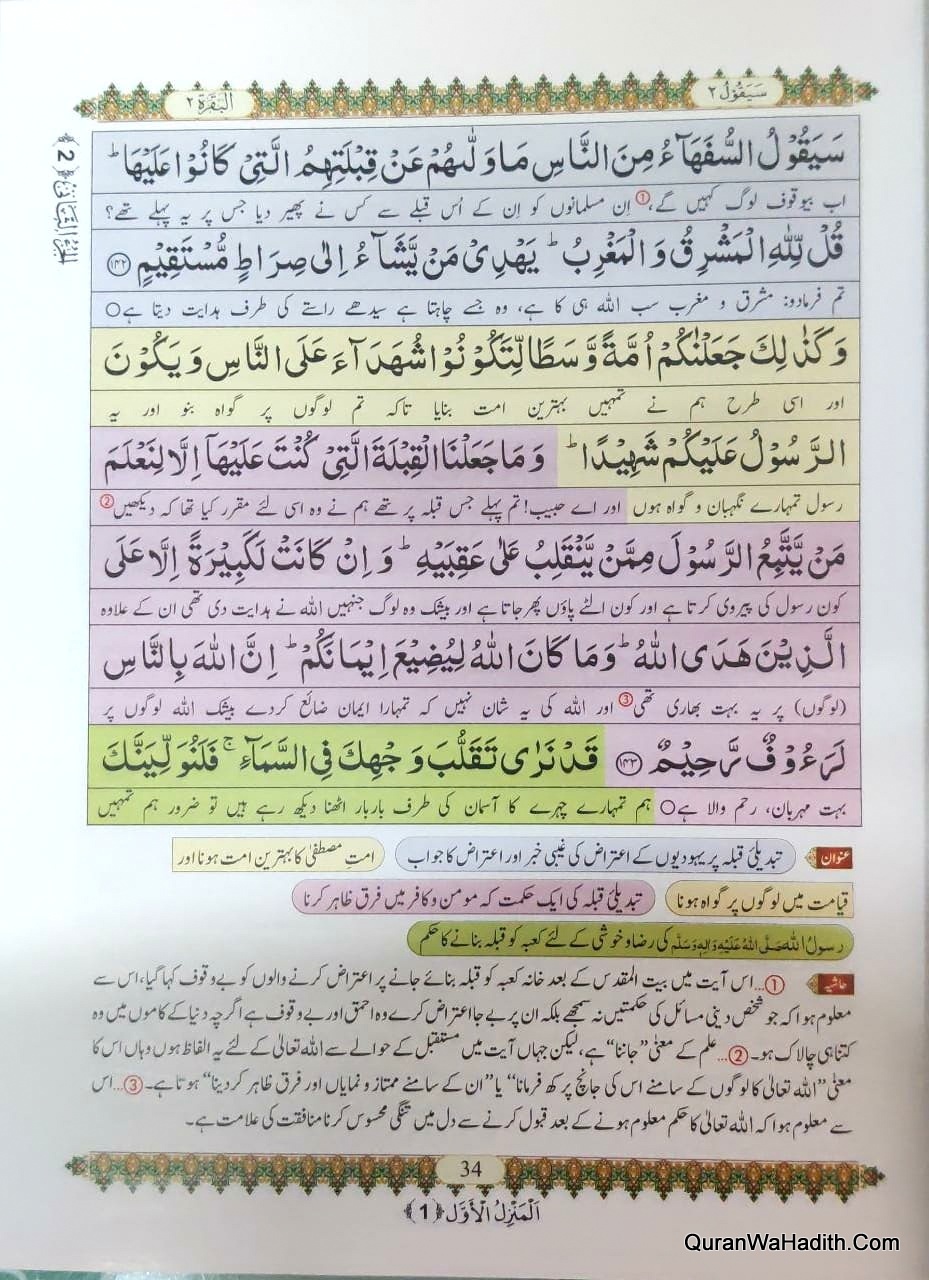 سَيَقُوْلُ ٢
اَلْبَقَرَة ٢
﴿2﴾ اَلْجُزْءُ الثَّانِىْ
سَيَقُوْلُ السُّفَهَآءُ مِنَ النَّاسِ مَا وَلّٰىهُمْ عَنْ قِبْلَتِهِمُ الَّتِىْ كَانُوْا عَلَيْهَا ؕ
اب بیوقوف لوگ کہیں گے،① اِن مسلمانوں کو اِن کے اُس قبلے سے کس نے پھیر دیا جس پر یہ پہلے تھے؟
قُلْ لِّلّٰهِ الْمَشْرِقُ وَ الْمَغْرِبُ ؕ يَهْدِىْ مَنْ يَّشَآءُ اِلٰى صِرَاطٍ مُّسْتَقِيْمٍ ﴿١٤٢﴾
تم فرمادو: مشرق و مغرب سب اللہ ہی کا ہے، وہ جسے چاہتا ہے سیدھے راستے کی طرف ہدایت دیتا ہے○
وَ كَذٰلِكَ جَعَلْنٰكُمْ اُمَّةً وَّسَطًا لِّتَكُوْنُوْا شُهَدَآءَ عَلَى النَّاسِ وَ يَكُوْنَ
اور اسی طرح ہم نے تمہیں بہترین امت بنایا تاکہ تم لوگوں پر گواہ بنو اور یہ
الرَّسُوْلُ عَلَيْكُمْ شَهِيْدًا ؕ وَ مَا جَعَلْنَا الْقِبْلَةَ الَّتِىْ كُنْتَ عَلَيْهَاۤ اِلَّا لِنَعْلَمَ
رسول تمہارے نگہبان و گواہ ہوں اور اے حبیب! تم پہلے جس قبلہ پر تھے ہم نے وہ اسی لئے مقرر کیا تھا کہ دیکھیں②
مَنْ يَّتَّبِعُ الرَّسُوْلَ مِمَّنْ يَّنْقَلِبُ عَلٰى عَقِبَيْهِ ؕ وَ اِنْ كَانَتْ لَكَبِيْرَةً اِلَّا عَلَى
کون رسول کی پیروی کرتا ہے اور کون الٹے پاؤں پھر جاتا ہے اور بیشک وہ لوگ جنہیں اللہ نے ہدایت دی تھی ان کے علاوہ
الَّذِيْنَ هَدَى اللّٰهُ ؕ وَ مَا كَانَ اللّٰهُ لِيُضِيْعَ اِيْمَانَكُمْ ؕ اِنَّ اللّٰهَ بِالنَّاسِ
(لوگوں) پر یہ بہت بھاری تھی③ اور اللہ کی یہ شان نہیں کہ تمہارا ایمان ضائع کردے بیشک اللہ لوگوں پر
لَرَءُوْفٌ رَّحِيْمٌ ﴿١٤٣﴾ قَدْ نَرٰى تَقَلُّبَ وَجْهِكَ فِى السَّمَآءِ ۚ فَلَنُوَلِّيَنَّكَ
بہت مہربان، رحم والا ہے○ ہم تمہارے چہرے کا آسمان کی طرف باربار اٹھنا دیکھ رہے ہیں تو ضرور ہم تمہیں
عنوان تبدیلیٔ قبلہ پر یہودیوں کے اعتراض کی غیبی خبر اور اعتراض کا جواب امتِ مصطفیٰ کا بہترین امت ہونا اور
قیامت میں لوگوں پر گواہ ہونا تبدیلیٔ قبلہ کی ایک حکمت کہ مومن و کافر میں فرق ظاہر کرنا
رسولُ اللہ صَلَّی اللہُ عَلَیْہِ وَاٰلِہٖ وَسَلَّم کی رضا و خوشی کے لئے کعبہ کو قبلہ بنانے کا حکم
حاشیہ ①...اس آیت میں بیت المقدس کے بعد خانہ کعبہ کو قبلہ بنائے جانے پر اعتراض کرنے والوں کو بے وقوف کہا گیا، اس سے
معلوم ہوا کہ جو شخص دینی مسائل کی حکمتیں نہ سمجھے بلکہ ان پر بے جا اعتراض کرے وہ احمق اور بے وقوف ہے اگرچہ دنیا کے کاموں میں وہ
کتنا ہی چالاک ہو۔ ②...علم کے معنی "جاننا" ہے، لیکن جہاں آیت میں مستقبل کے حوالے سے اللہ تعالیٰ کے لئے یہ الفاظ ہوں وہاں اس کا
معنی "اللہ تعالیٰ کا لوگوں کے سامنے اس کی جانچ پرکھ فرمانا" یا "ان کے سامنے ممتاز و نمایاں اور فرق ظاہر کر دینا" ہوتا ہے۔ ③...اس
سے معلوم ہوا کہ اللہ تعالیٰ کا حکم معلوم ہونے کے بعد قبول کرنے سے دل میں تنگی محسوس کرنا منافقت کی علامت ہے۔
34
اَلْمَنْزِلُ الْاَوَّل ﴿1﴾
QuranWaHadith.Com